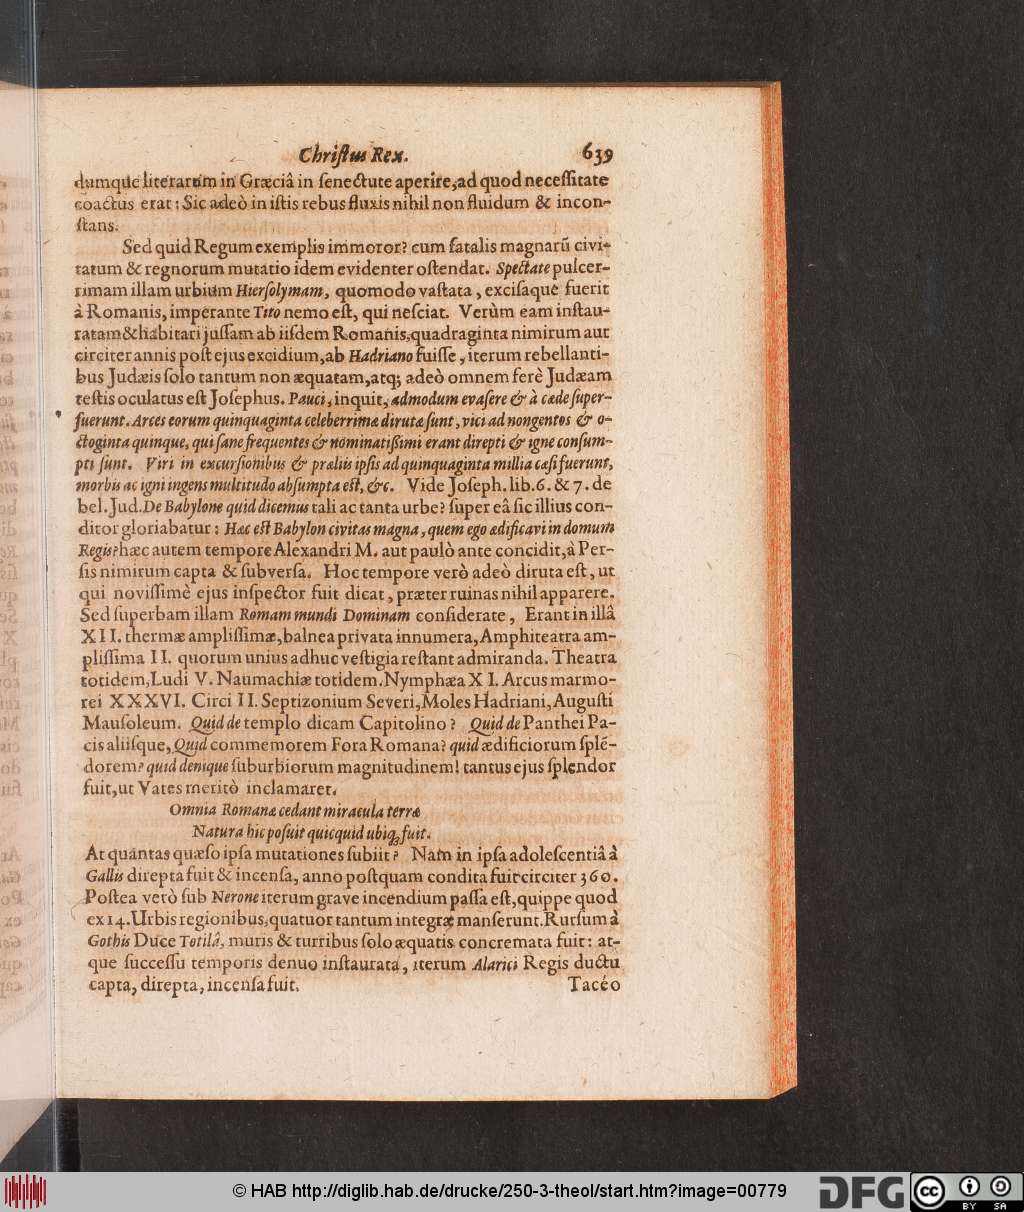 Christus Rex. 639
dumque literarum in Græciâ in senectute aperire, ad quod necessitate
coactus erat: Sic adeò in istis rebus fluxis nihil non fluidum & incon-
stans.
Sed quid Regum exemplis immoror? cum fatalis magnarū civi-
tatum & regnorum mutatio idem evidenter ostendat. Spectate pulcer-
rimam illam urbium Hiersolymam, quomodo vastata, excisaque fuerit
à Romanis, imperante Tito nemo est, qui nesciat. Verùm eam instau-
ratam & habitari jussam ab iisdem Romanis, quadraginta nimirum aut
circiter annis post ejus excidium, ab Hadriano fuisse, iterum rebellanti-
bus Judæis solo tantum non æquatam, atq; adeò omnem ferè Judæam
testis oculatus est Josephus. Pauci, inquit, admodum evasere & à cæde super-
fuerunt. Arces eorum quinquaginta celeberrimæ dirutæ sunt, vici ad nongentos & o-
ctoginta quinque, qui sane frequentes & nominatissimi erant direpti & igne consum-
pti sunt. Viri in excursionibus & præliis ipsis ad quinquaginta millia cæsi fuerunt,
morbis ac igni ingens multitudo absumpta est, &c. Vide Joseph. lib. 6. & 7. de
bel. Jud. De Babylone quid dicemus tali ac tanta urbe? super eâ sic illius con-
ditor gloriabatur: Hæc est Babylon civitas magna, quem ego ædificavi in domum
Regis? hæc autem tempore Alexandri M. aut paulò ante concidit, à Per-
sis nimirum capta & subversa. Hoc tempore verò adeò diruta est, ut
qui novissimè ejus inspector fuit dicat, præter ruinas nihil apparere.
Sed superbam illam Romam mundi Dominam considerate, Erant in illâ
XII. thermæ amplissimæ, balnea privata innumera, Amphiteatra am-
plissima II. quorum unius adhuc vestigia restant admiranda. Theatra
totidem, Ludi V. Naumachiæ totidem. Nymphæa XI. Arcus marmo-
rei XXXVI. Circi II. Septizonium Severi, Moles Hadriani, Augusti
Mausoleum. Quid de templo dicam Capitolino? Quid de Panthei Pa-
cis aliisque, Quid commemorem Fora Romana? quid ædificiorum splē-
dorem? quid denique suburbiorum magnitudinem! tantus ejus splendor
fuit, ut Vates meritò inclamaret.
Omnia Romanæ cedant miracula terræ
Natura hic posuit quicquid ubiq; fuit.
At quantas quæso ipsa mutationes subiit? Nam in ipsa adolescentiâ à
Gallis direpta fuit & incensa, anno postquam condita fuit circiter 360.
Postea verò sub Nerone iterum grave incendium passa est, quippe quod
ex 14. Urbis regionibus, quatuor tantum integræ manserunt. Rursum à
Gothis Duce Totilâ, muris & turribus solo æquatis concremata fuit: at-
que successu temporis denuo instaurata, iterum Alarici Regis ductu
capta, direpta, incensa fuit. Tacéo
© HAB http://diglib.hab.de/drucke/250-3-theol/start.htm?image=00779
DFG cc BY SA